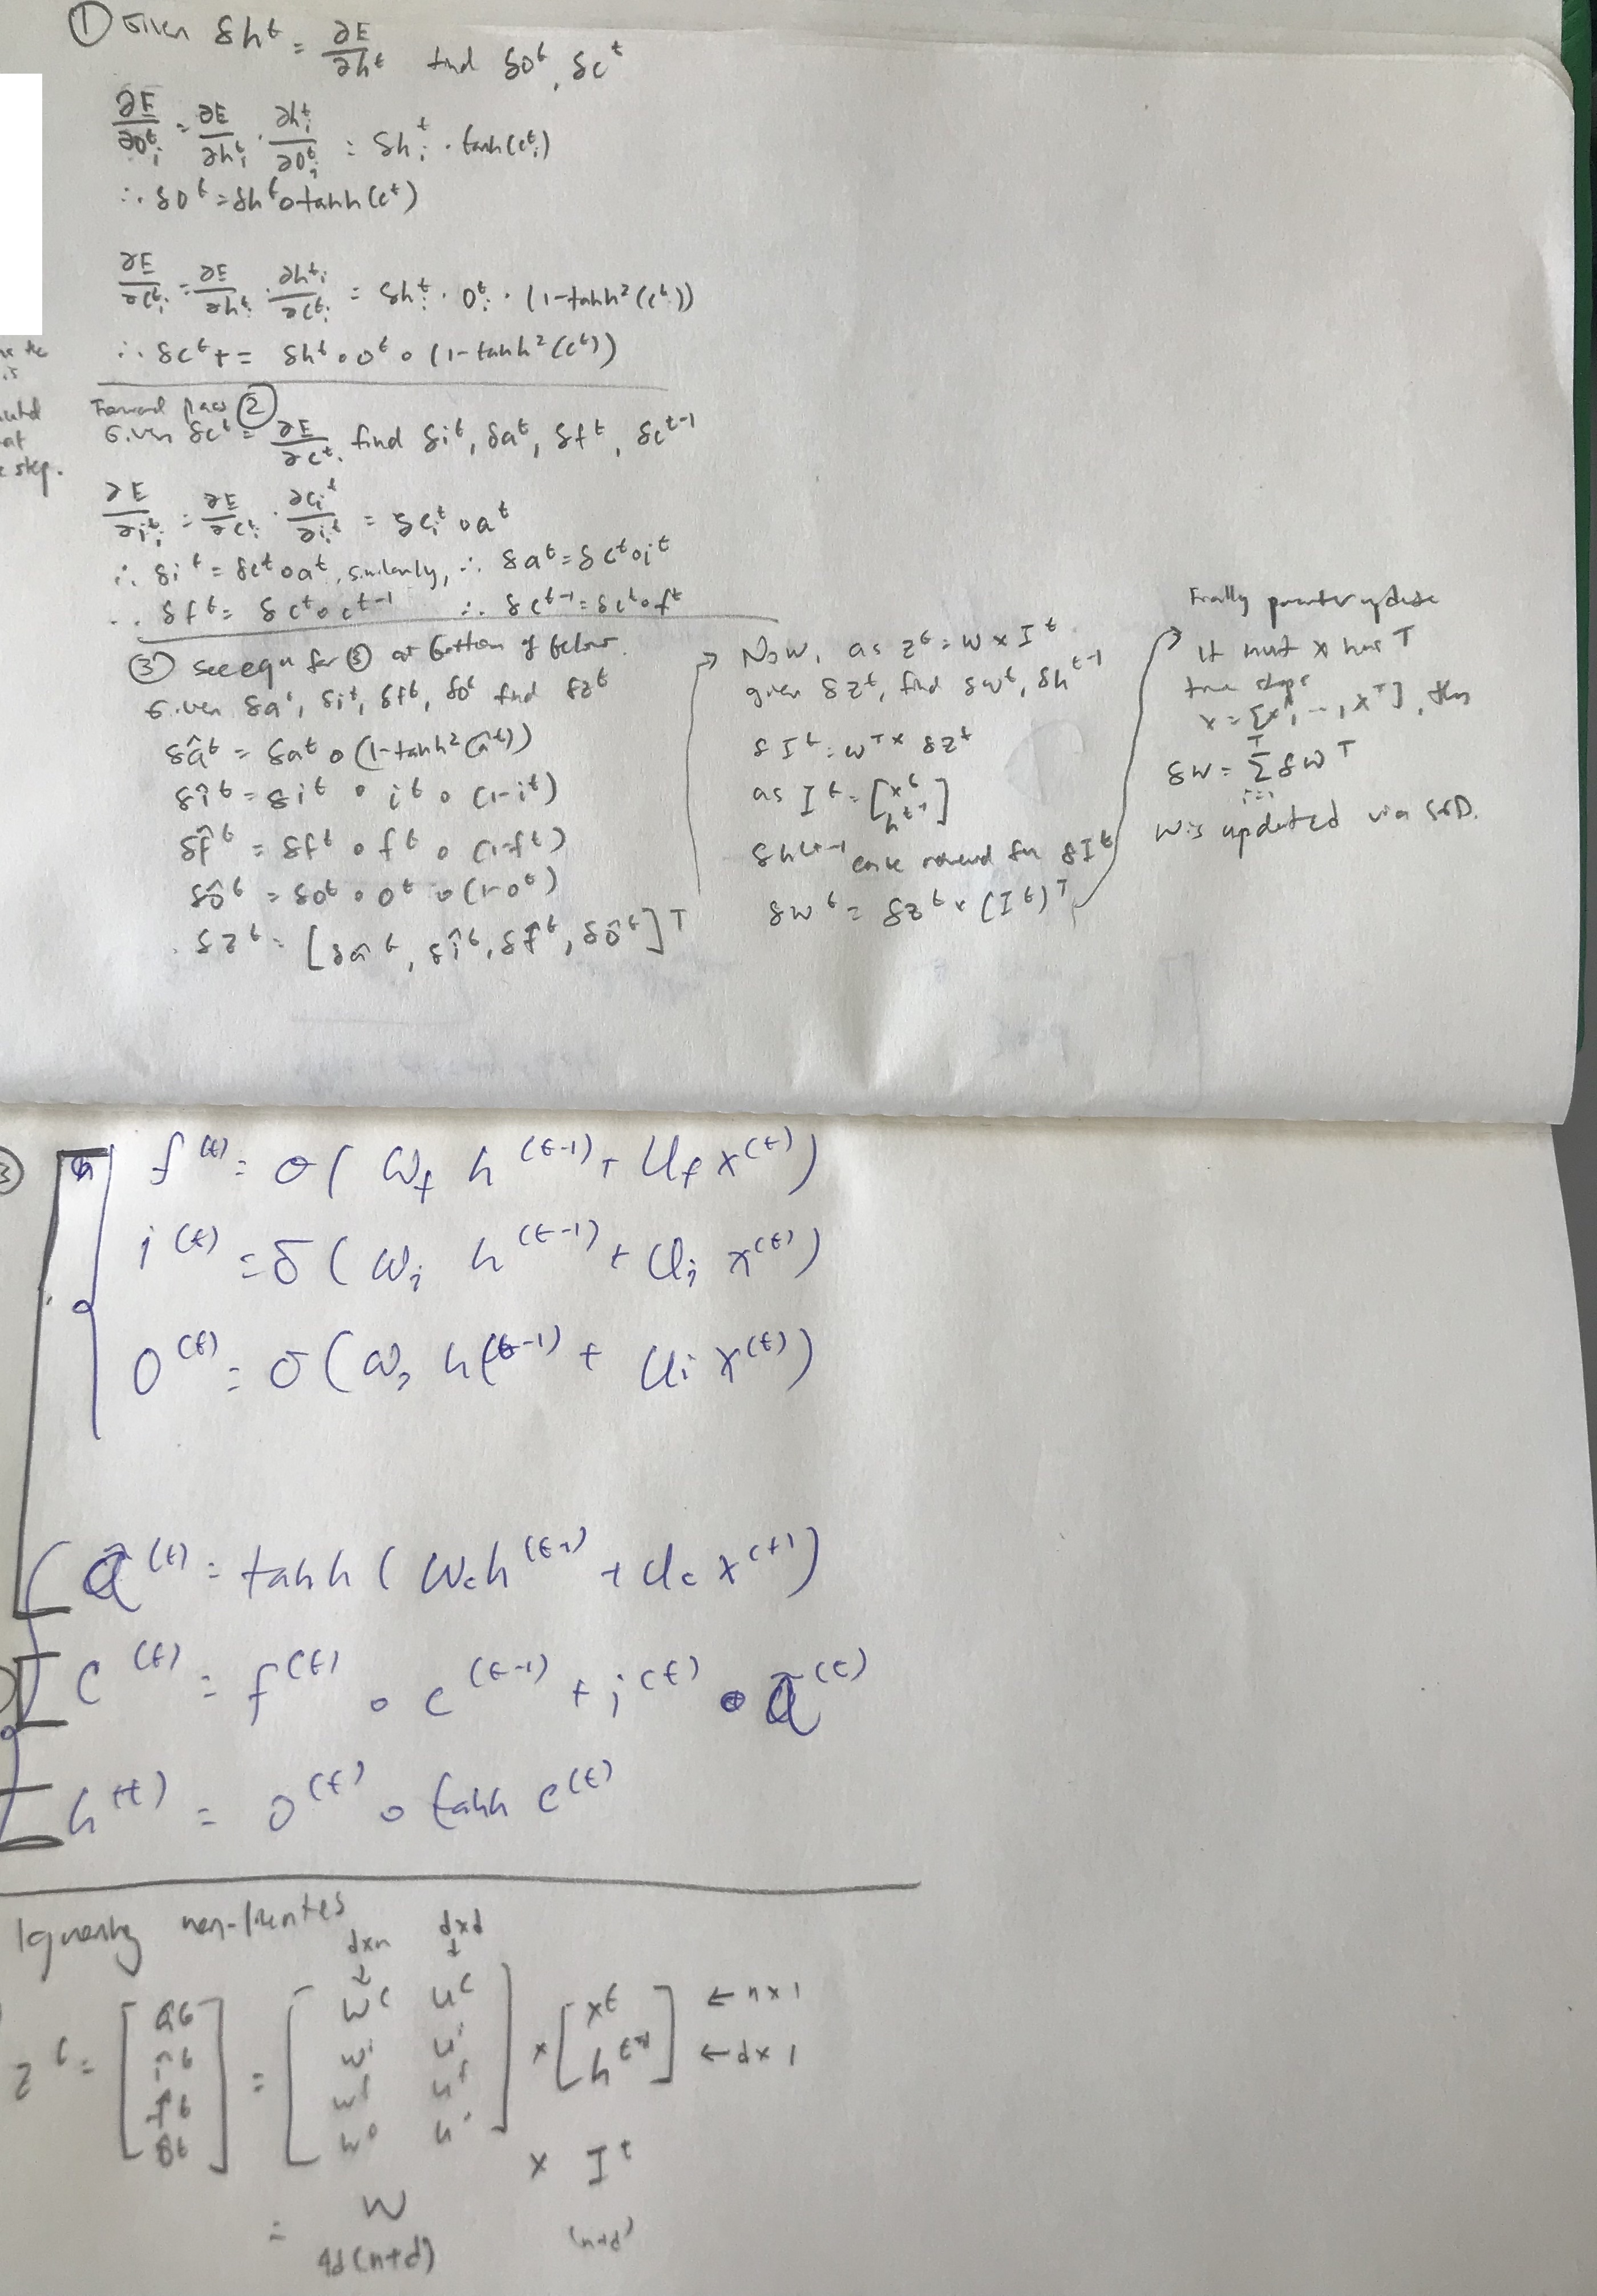 ① Given δh^t = ∂E/∂h^t find δo^t, δc^t
∂E/∂o^t_i = ∂E/∂h^t_i · ∂h^t_i/∂o^t_i = δh^t_i · tanh(c^t_i)
∴ δo^t = δh^t ∘ tanh(c^t)
∂E/∂c^t_i = ∂E/∂h^t_i · ∂h^t_i/∂c^t_i = δh^t_i · o^t_i · (1-tanh²(c^t_i))
∴ δc^t += δh^t ∘ o^t ∘ (1-tanh²(c^t))
is
at
step.
Forward pass ②
Given δc^t = ∂E/∂c^t, find δi^t, δa^t, δf^t, δc^t-1
∂E/∂i^t_i = ∂E/∂c^t_i · ∂c_i^t/∂i_i^t = δc_i^t ∘ a^t
∴ δi^t = δc^t ∘ a^t, similarly, ∴ δa^t = δc^t ∘ i^t
∴ δf^t = δc^t ∘ c^t-1 ∴ δc^t-1 = δc^t ∘ f^t
③ see eqn for ③ at bottom of below.
Given δa^t, δi^t, δf^t, δo^t find δz^t
δâ^t = δa^t ∘ (1-tanh²(â^t))
δî^t = δi^t ∘ i^t ∘ (1-i^t)
δf̂^t = δf^t ∘ f^t ∘ (1-f^t)
δô^t = δo^t ∘ o^t ∘ (1-o^t)
δz^t = [δâ^t, δî^t, δf̂^t, δô^t]^T
→ Now, as z^t = w × I^t
given δz^t, find δw^t, δh^t-1
δI^t = w^T × δz^t
as I^t = [x^t h^t-1]
δh^t-1 can be retrieved from δI^t
δw^t = δz^t × (I^t)^T
→ Finally parameter update
If input x has T
time steps
x = [x^1, ..., x^T], then
δw = Σ_{i=1}^T δw^T
W is updated via SGD.
③ f^(t) = σ(W_f h^(t-1) + U_f x^(t))
i^(t) = σ(W_i h^(t-1) + U_i x^(t))
o^(t) = σ(W_o h^(t-1) + U_i x^(t))
ã^(t) = tanh(W_c h^(t-1) + U_c x^(t))
c^(t) = f^(t) ∘ c^(t-1) + i^(t) ∘ ã^(t)
h^(t) = o^(t) ∘ tanh c^(t)
Ignoring non-linearites
d×n d×d
z^t = [â^t î^t f̂^t ô^t] = [W^c U^c W^i U^i W^f U^f W^o U^o] × [x^t h^t-1] ← n×1 ← d×1
= W × I^t
4d(n+d) (n+d)